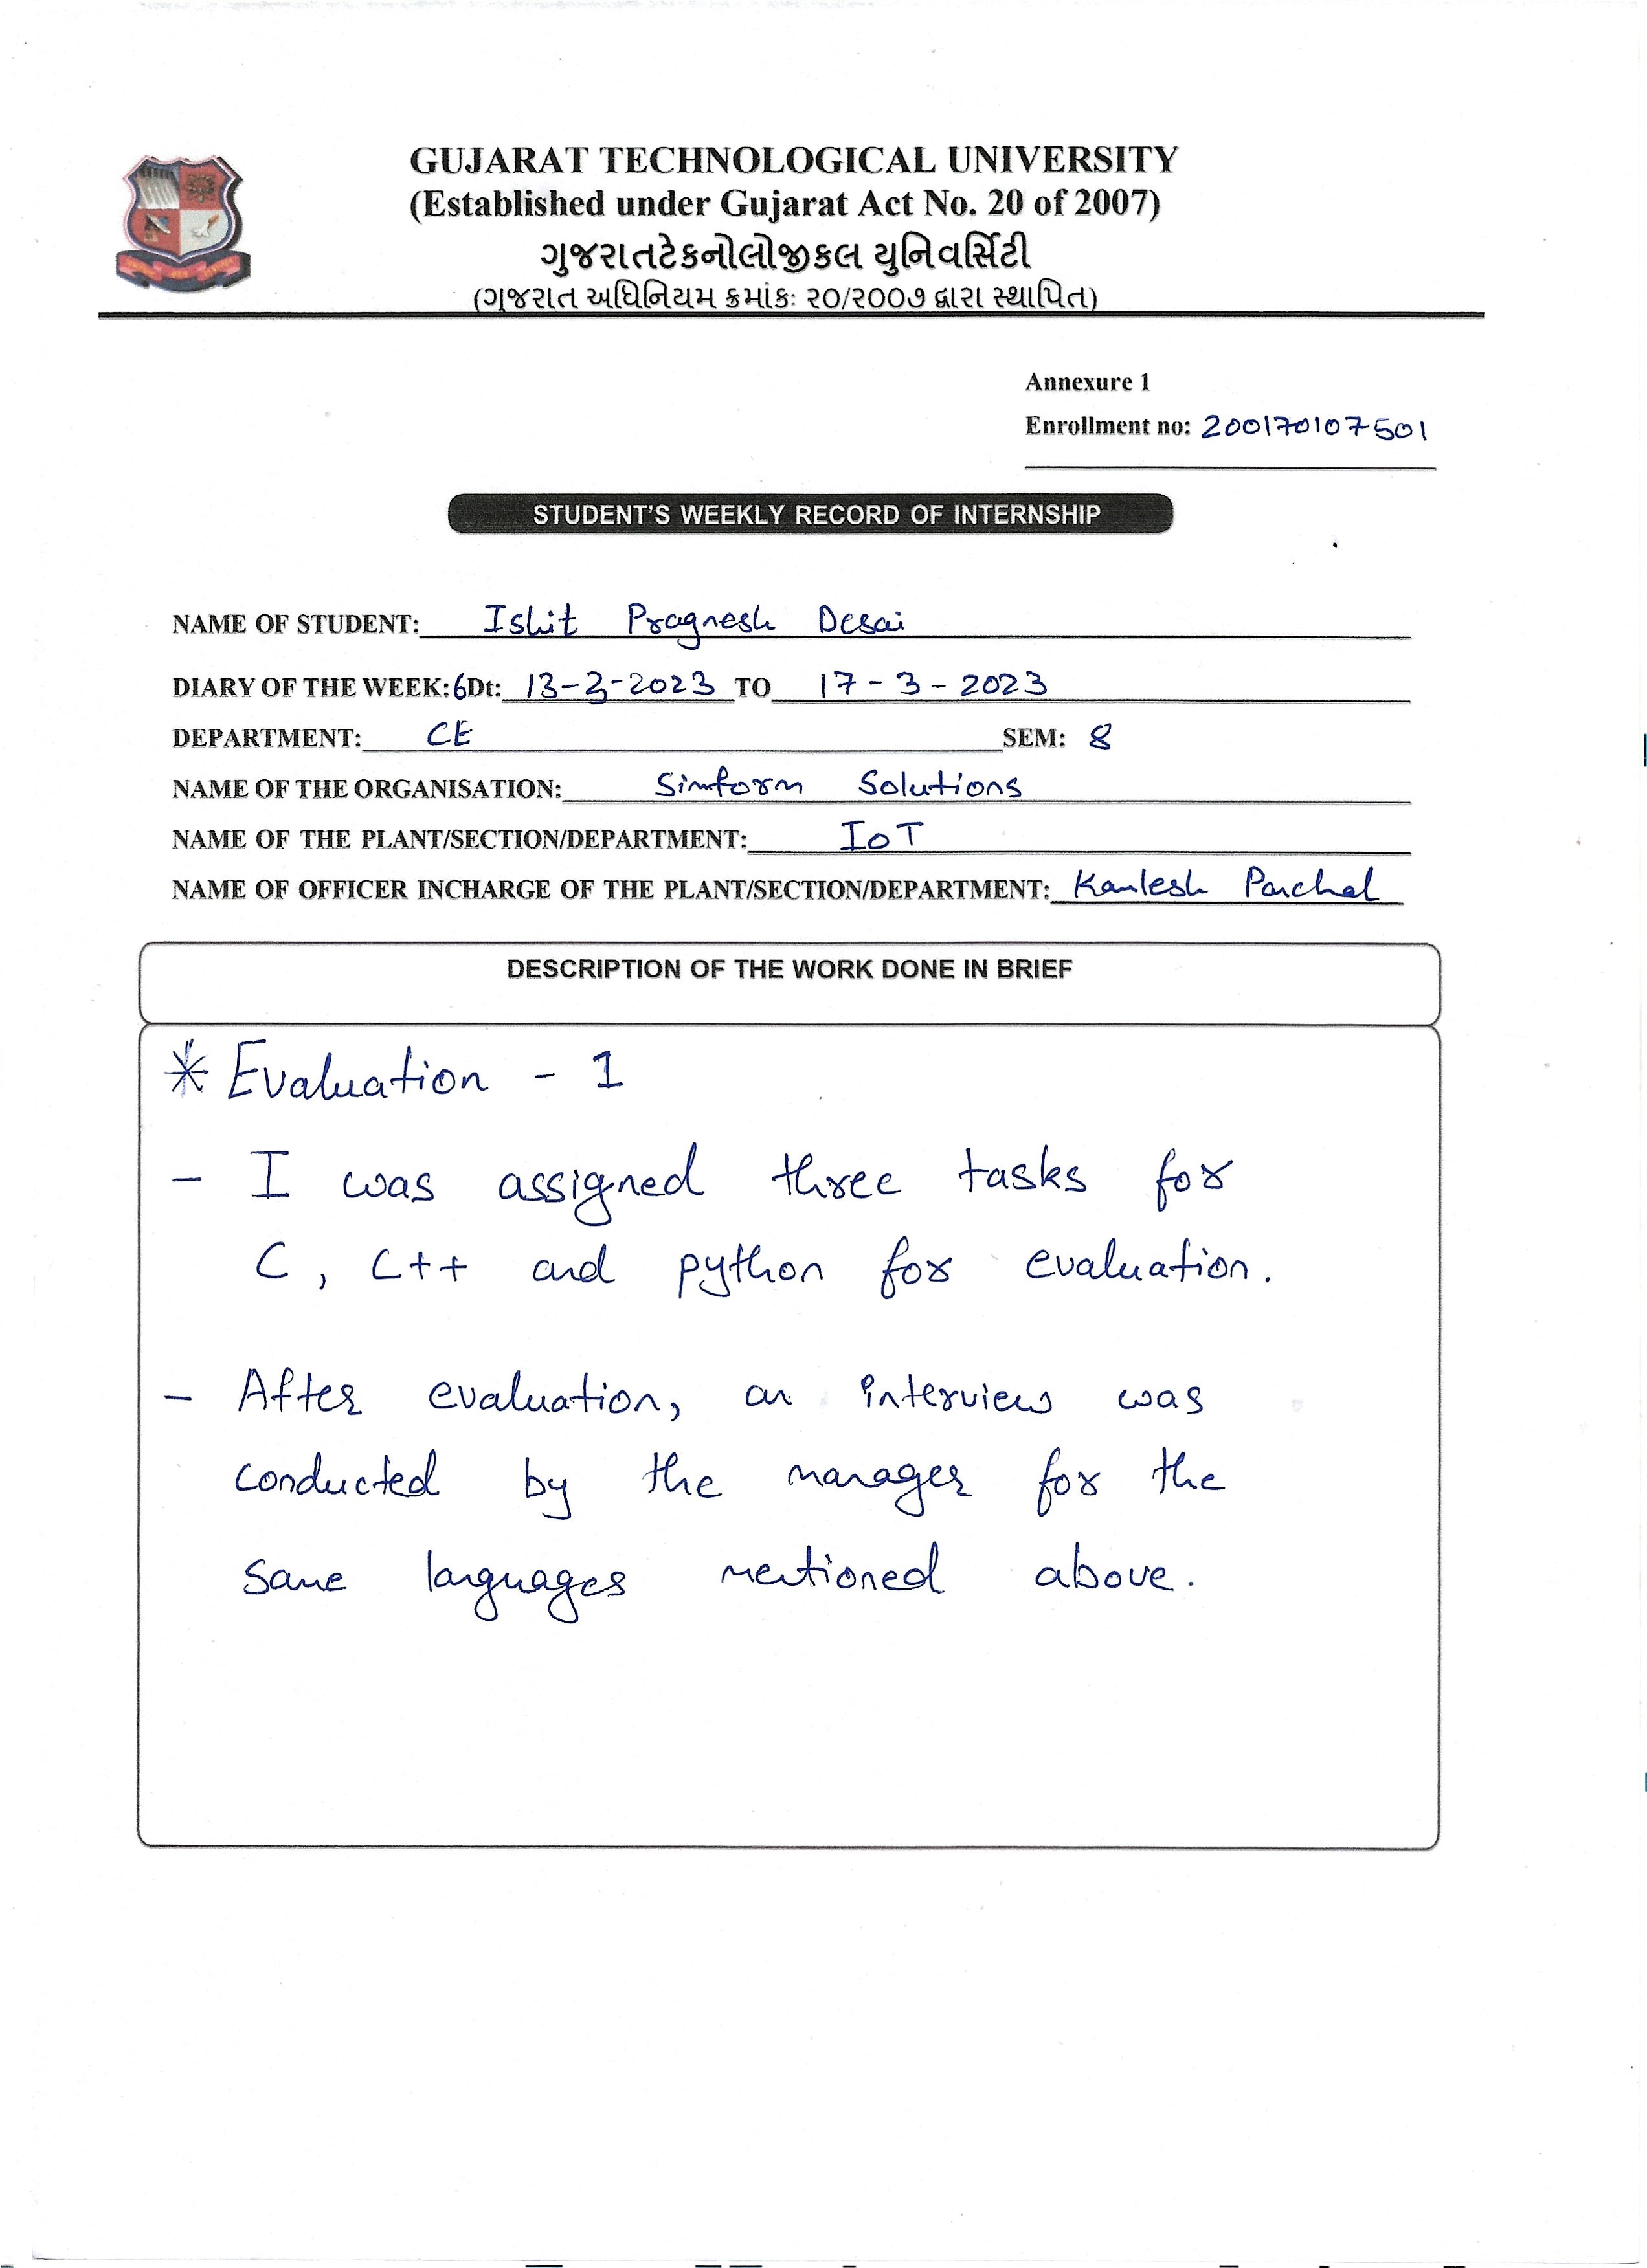 GUJARAT TECHNOLOGICAL UNIVERSITY
(Established under Gujarat Act No. 20 of 2007)
ગુજરાતટેકનોલોજીકલ યુનિવર્સિટી
(ગુજરાત અધિનિયમ ક્રમાંકઃ ૨૦/૨૦૦૭ દ્વારા સ્થાપિત)
Annexure 1
Enrollment no: 200170107501
STUDENT'S WEEKLY RECORD OF INTERNSHIP
NAME OF STUDENT: Ishit Pragnesh Desai
DIARY OF THE WEEK:6Dt: 13-3-2023 TO 17-3-2023
DEPARTMENT: CE SEM: 8
NAME OF THE ORGANISATION: Simform Solutions
NAME OF THE PLANT/SECTION/DEPARTMENT: IoT
NAME OF OFFICER INCHARGE OF THE PLANT/SECTION/DEPARTMENT: Kamlesh Panchal
DESCRIPTION OF THE WORK DONE IN BRIEF
* Evaluation - 1
- I was assigned three tasks for
C, C++ and python for evaluation.
- After evaluation, an interview was
conducted by the manager for the
same languages mentioned above.